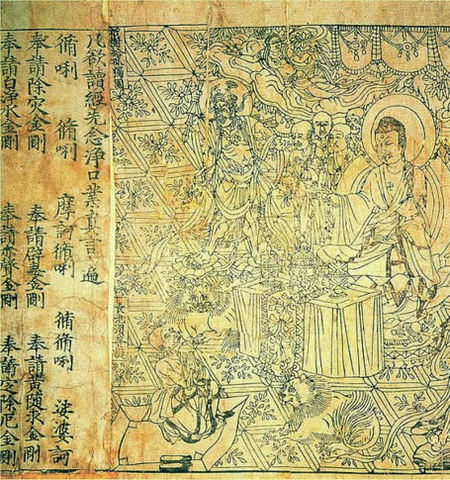 祇樹給孤獨園
長老須菩提
凡欲讀經先念淨口業真言一遍
脩唎 脩唎 摩訶脩唎 脩脩唎 娑婆訶
奉請除灾金剛 奉請辟毒金剛 奉請黃隨求金剛
奉請白淨水金剛 奉請赤聲金剛 奉請定除厄金剛